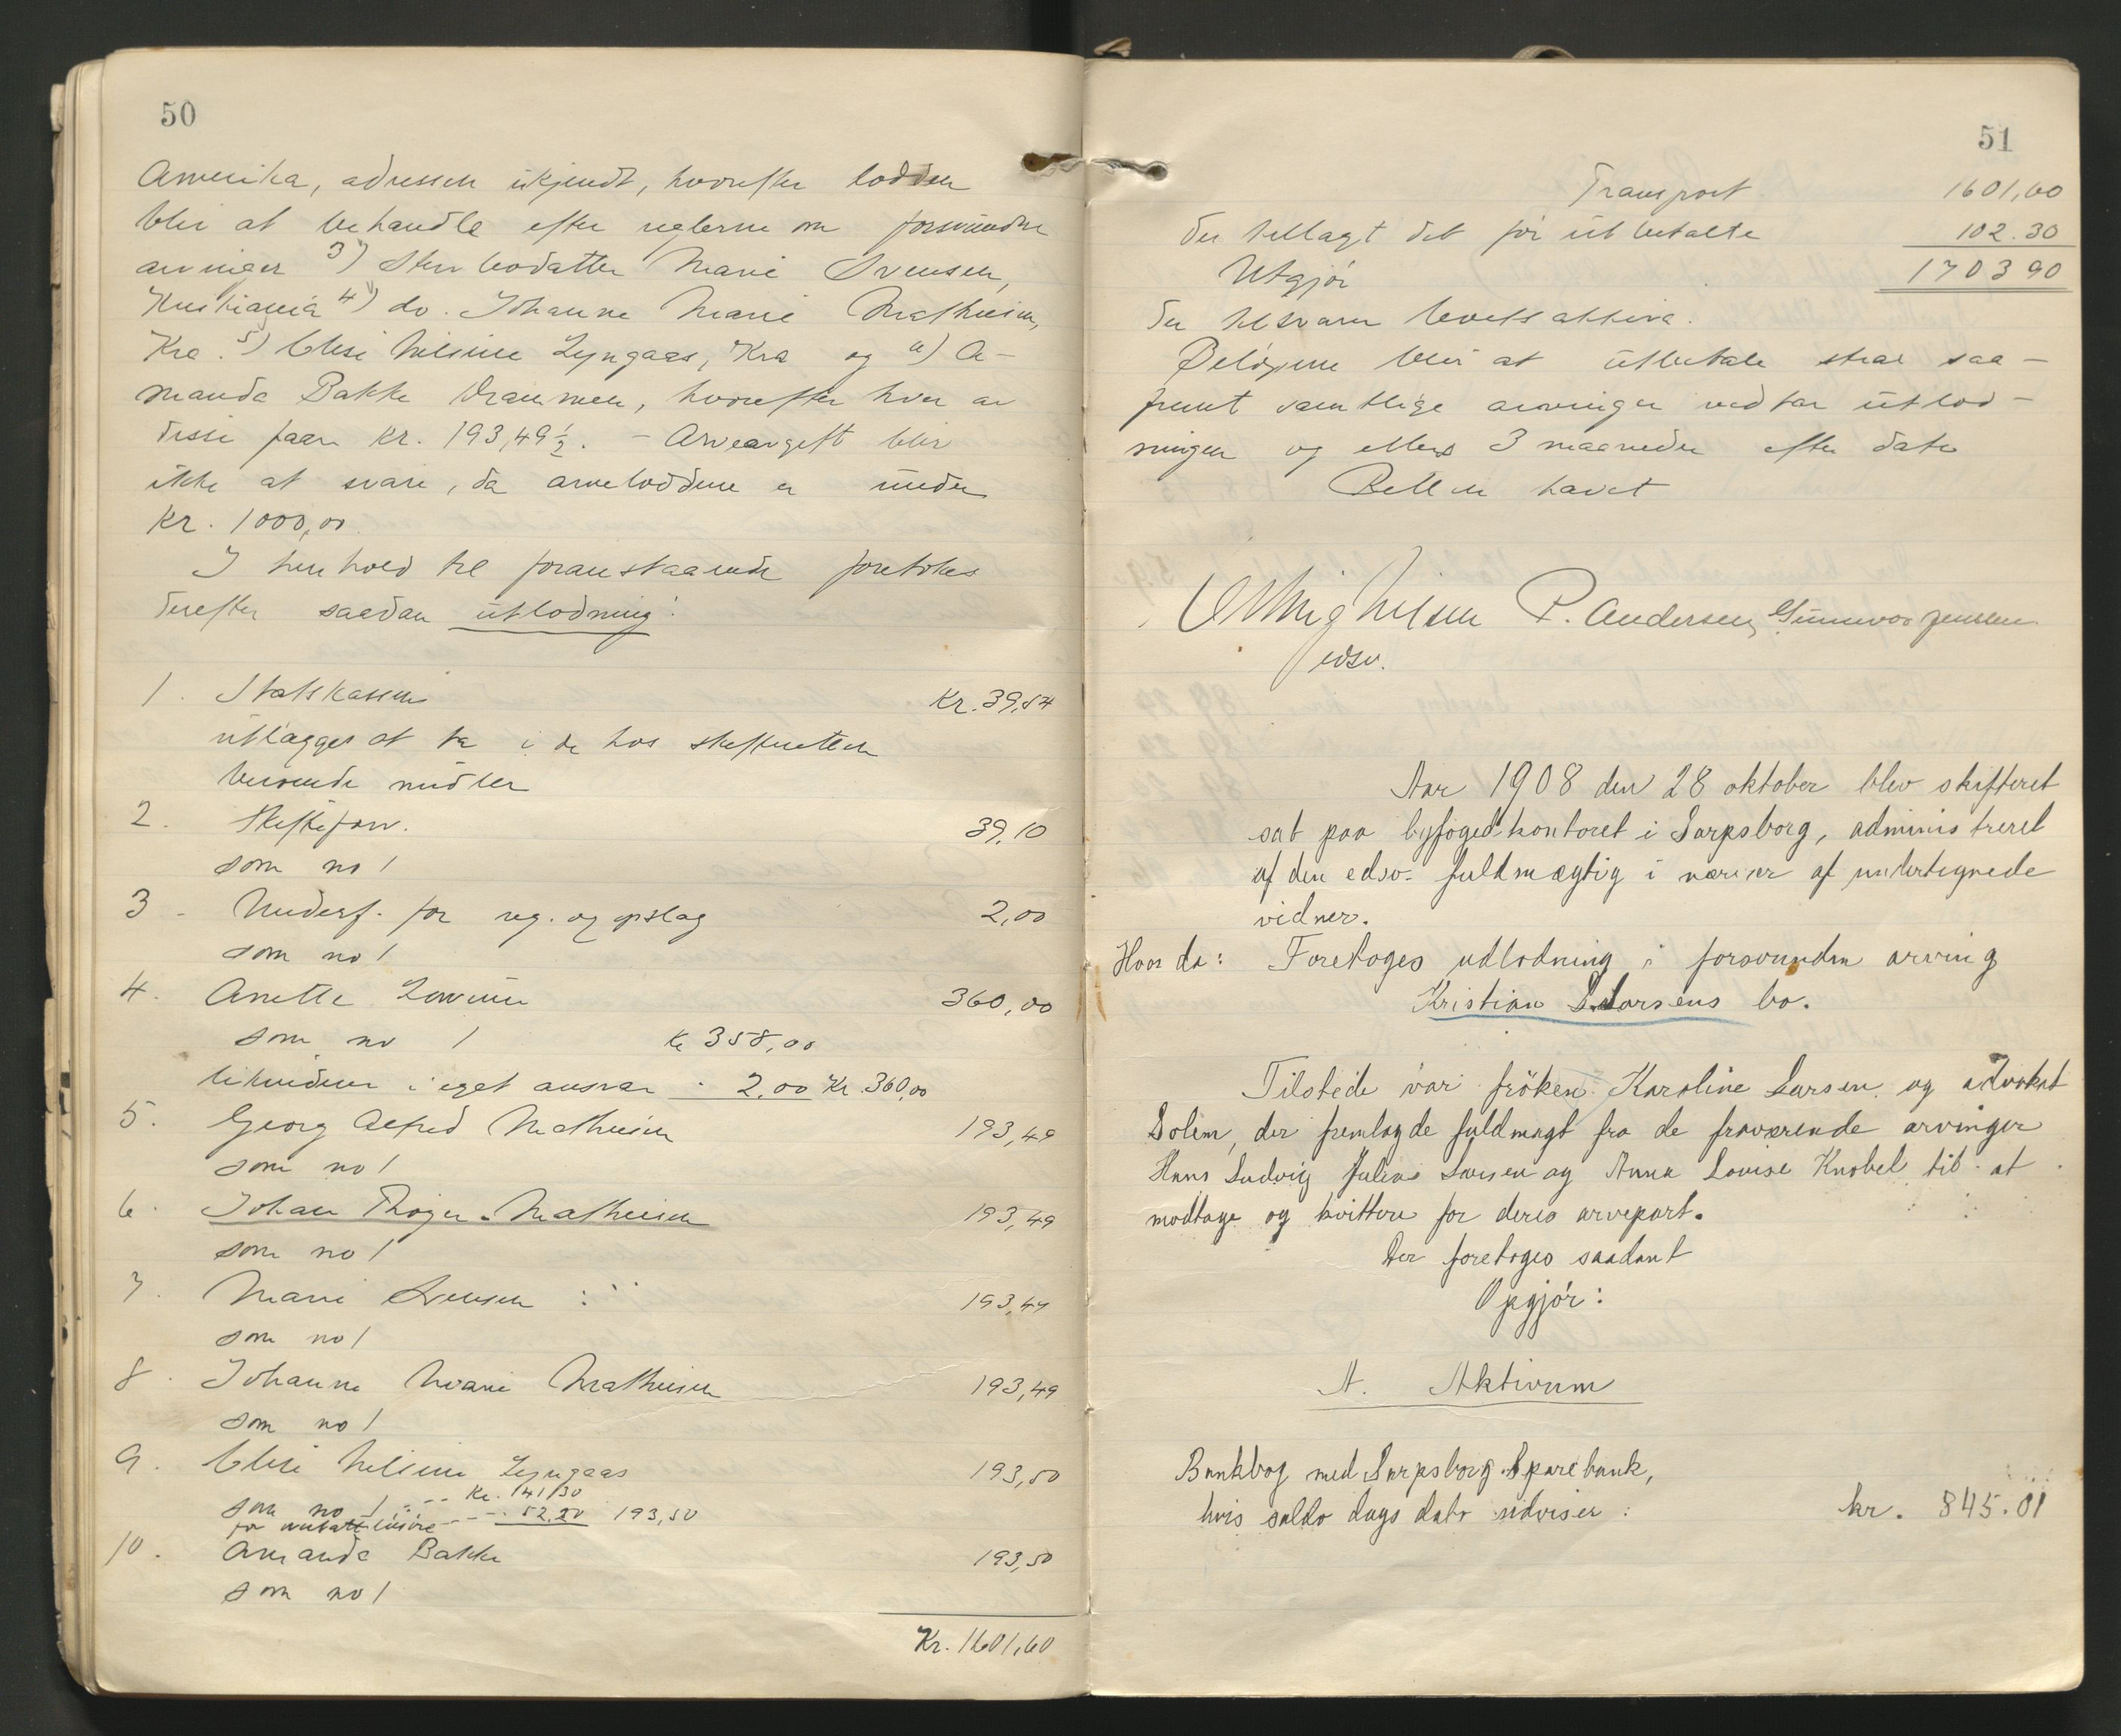 50
Amerika, adressen ukjendt, hvorefter lodden
blir at behandle efter reglerne om forsvundne
arvinger 3) Stervbodatter Marie Svensen,
Kristiania 4) do. Johanne Marie Mathiesen,
Kra. 5) Elise Nilsine Lyngaas, Kra og 6) A-
manda Bakke Drammen, hvorefter hver av
disse faar kr. 193,49½. - Arveavgift blir
ikke at svare, da arveloddene er under
Kr. 1000,00.
I henhold til foranstaaende foretokes
derefter saadan utlodning:
1. Statskassen Kr. 39,54
utlægges at ta i de hos skifteretten
beroende midler
2. Skifteforv. 39,10
som no 1
3 - Underf. for reg. og opslag 2,00
som no 1
4. Anette 360,00
som no 1 Kr 358,00
likvideres i eget ansvar - 2,00 Kr. 360,00
5. Georg Alfred Mathiesen 193,49
som no 1
6. Johan Thoger Mathiesen 193,49
som no 1
7. Marie Svensen 193,49
som no 1
8. Johanne Marie Mathiesen 193,49
som no 1
9. Elise Nilsine Lyngaas 193,50
som no 1 --- Kr. 141,30
for --- 52,20 193,50
10. Amanda Bakke 193,50
som no 1
Kr. 1601,60
51
Transport 1601,60
der tillagt det før utbetalte 102.30
Utgjør 1703 90
der tilsvarer boets aktiva.
Beløpene blir at utbetale strax saa-
fremt samtlige arvinger vedtar utlod-
ningen og ellers 3 maaneder efter dato
Retten hævet
Nilsen P. Andersen Gunnvor Jensen
edsv.
Aar 1908 den 28 oktober blev skifteret
sat paa byfogedkontoret i Sarpsborg, administreret
af den edsv. fuldmægtig i nærvær af undertegnede
vidner.
Hvor da: Foretoges udlodning i forsvunden arving
Kristian Larsens bo.
Tilstede var frøken Karoline Larsen og advokat
Solem, der fremlagde fuldmagt fra de fraværende arvinger
Hans Ludvig Julius Larsen og Anna Lovise Knobel til at
modtage og kvittere for deres arvepart.
Der foretoges saadant
Opgjør:
A. Aktivum
Bankbog med Sarpsborg Sparebank,
hvis saldo dags dato udviser: kr. 845.01